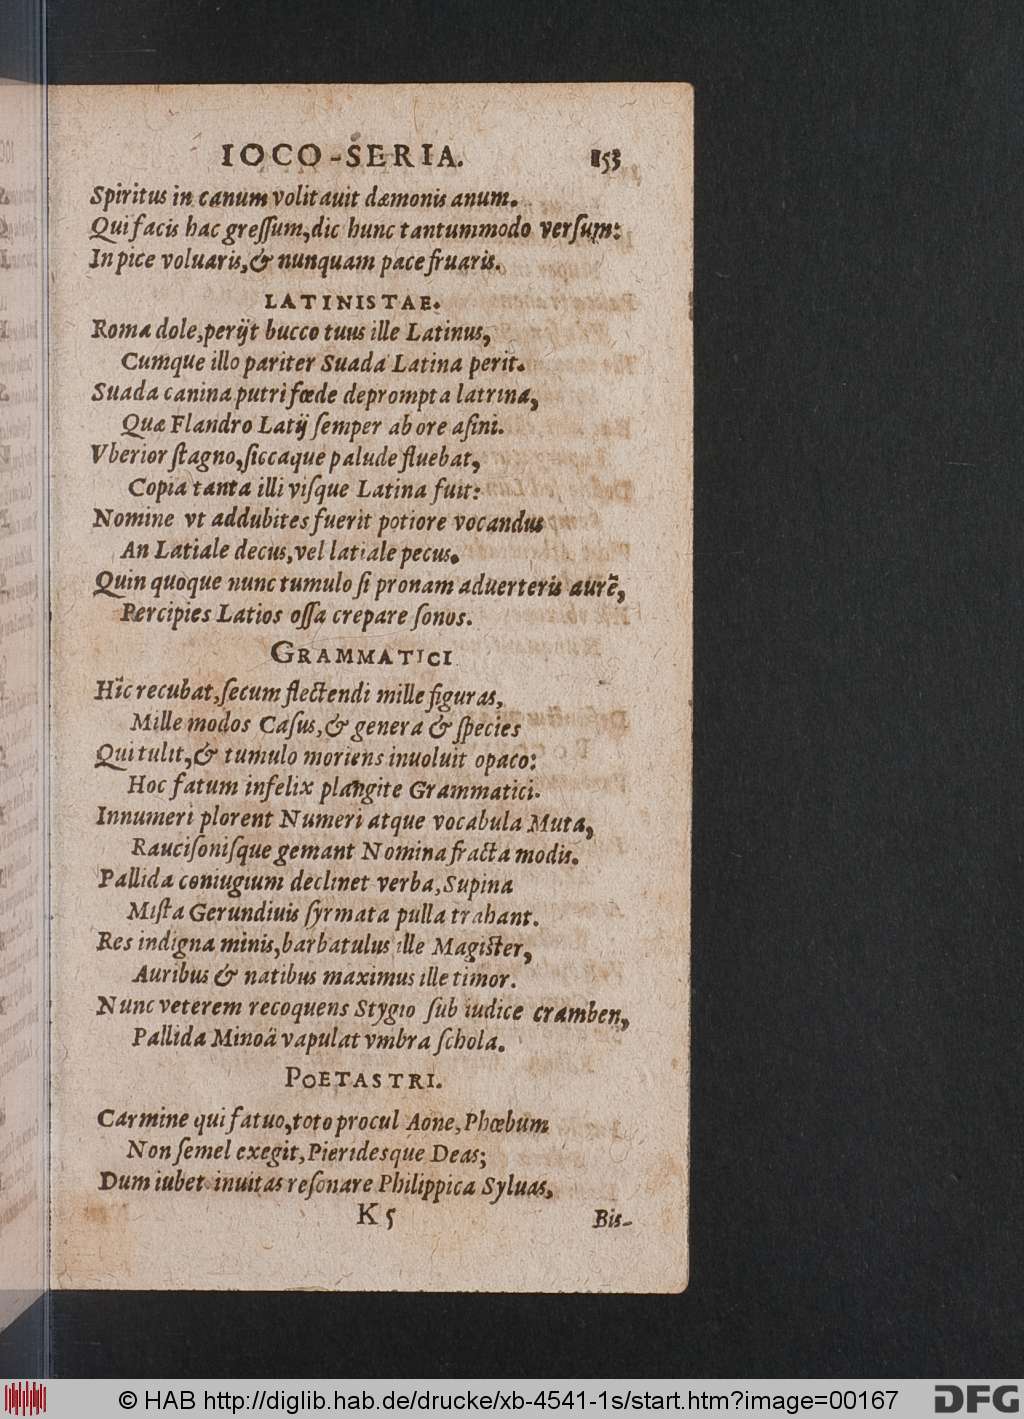 IOCO-SERIA. 153
Spiritus in canum volitauit dæmonis anum.
Qui facis hac greſſum, dic hunc tantummodo verſum:
In pice voluaris, & nunquam pace fruaris.
LATINISTAE.
Roma dole, perijt bucco tuus ille Latinus,
Cumque illo pariter Suada Latina perit.
Suada canina putri fœde deprompta latrina,
Quæ Flandro Latij ſemper ab ore aſini.
Vberior ſtagno, ſiccaque palude fluebat,
Copia tanta illi viſque Latina fuit:
Nomine vt addubites fuerit potiore vocandus
An Latiale decus, vel latiale pecus.
Quin quoque nunc tumulo ſi pronam aduerteris aurē,
Percipies Latios oſſa crepare ſonos.
GRAMMATICI
Hîc recubat, ſecum flectendi mille figuras,
Mille modos Caſus, & genera & ſpecies
Qui tulit, & tumulo moriens inuoluit opaco:
Hoc fatum infelix plangite Grammatici.
Innumeri plorent Numeri atque vocabula Muta,
Rauciſoniſque gemant Nomina fracta modis.
Pallida coniugium declinet verba, Supina
Miſta Gerundiuis ſyrmata pulla trahant.
Res indigna minis, barbatulus ille Magiſter,
Auribus & natibus maximus ille timor.
Nunc veterem recoquens Stygio ſub iudice cramben,
Pallida Minoâ vapulat vmbra ſchola.
POETASTRI.
Carmine qui fatuo, toto procul Aone, Phœbum
Non ſemel exegit, Pieridesque Deas;
Dum iubet inuitas reſonare Philippica Syluas,
K 5 Bis-
© HAB http://diglib.hab.de/drucke/xb-4541-1s/start.htm?image=00167
DFG